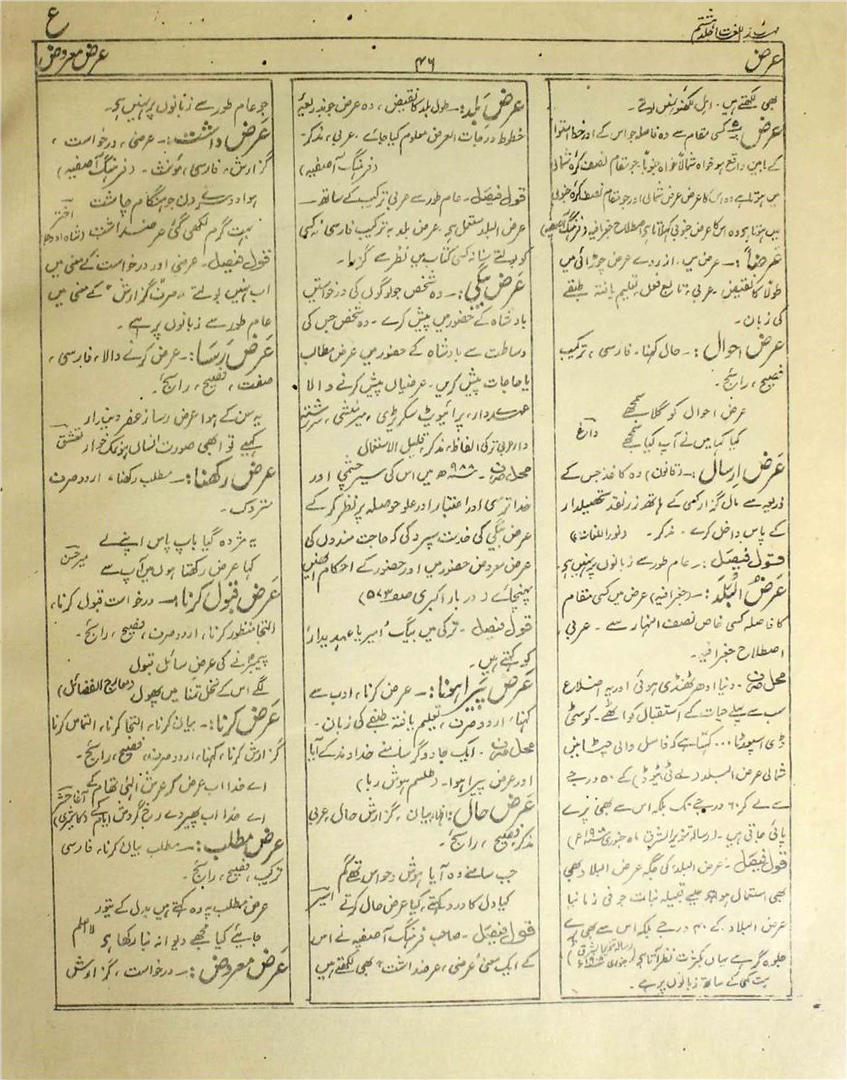 مہذب اللغات جلد ہشتم
ع
عرض
۴۶
عرض معروض
بھی لکھتے ہیں۔ اہل لکھنؤ نہیں بولتے۔
عرض کسی مقام سے وہ فاصلہ جو اس کے اور خط استوا
کے مابین واقع ہو خواہ شمالاً خواہ جنوباً، جو مقام نصف کرہ شمالی
میں ہوتا ہے وہ اس کا عرض عرض شمالی اور جو مقام نصف کرہ جنوبی
میں ہوتا ہے وہ اس کا عرض جنوبی کہلاتا ہے اصطلاح جغرافیہ (فرہنگ آصفیہ)
عرضاً:۔ عرض میں۔ از روے عرض چوڑائی میں
طولاً کا نقیض۔ عربی، تابع فعل، تعلیم یافتہ طبقے
کی زبان۔
عرض احوال:۔ حال کہنا۔ فارسی، ترکیب
فصیح، رائج۔
عرض احوال کو گلا سمجھے
کیا کہا میں نے آپ کیا سمجھے داغ
عرض ارسال:۔ (قانون) وہ کاغذ جس کے
ذریعہ سے مال گزار کمی کے ہاتھ زر نقد تحصیلدار
کے پاس داخل کرے۔ مذکر۔ (نور اللغات)
قول فیصل:۔ عام طور سے زبانوں پر نہیں ہے۔
عرض البلد:۔ (جغرافیہ) عرض میں کسی مقام
کا فاصلہ کسی خاص نصف النہار سے۔ عربی،
اصطلاح جغرافیہ۔
محل صرف۔ دنیا ادھر ٹھنڈی ہوئی اور یہ اضلاع
سب سے پہلے حیات کے استقبال کو اٹھے۔ کوسٹی
ڈی سپورٹا... کہتا ہے کہ فاسل والی چٹانیں
شمالی عرض البلد (لے ٹی ٹیوڈ) کے ۵۰ درجے
سے لے کر ۶۰ درجے تک بلکہ اس سے بھی نیچے
پائی جاتی ہیں۔ (رسالہ تنویر الشرق ماہ جنوری
قول فیصل۔ عرض البلد کی جگہ عرض البلاد بھی
بھی استعمال ہوا ہے جیسے قبیلہ نبات جو فی زمانا
عرض البلاد کے ۴۰ درجے بلکہ اس سے بھی پرے
جلوہ گر ہے یہاں بکثرت نظر آتا ہے
بہت کمی کے ساتھ زبانوں پر ہے۔
عرض بلد:۔ طول بلد کا نقیض، وہ عرض جو بذریعۂ
خطوط درجات العرض معلوم کیا جائے۔ عربی، مذکر۔
(فرہنگ آصفیہ)
قول فیصل۔ عام طور سے عربی ترکیب کے ساتھ۔
عرض البلد مستعمل ہے۔ عرض بلد بہ ترکیب فارسی نہ کسی
کو بولتے سنا نہ کسی کتاب میں نظر سے گزرا۔
عرض بیگی:۔ وہ شخص جو لوگوں کی درخواستیں
بادشاہ کے حضور میں پیش کرے۔ وہ شخص جس کی
وساطت سے بادشاہ کے حضور میں عرض مطالب
یا حاجات پیش کریں۔ عرضیاں پیش کرنے والا
عہدہ دار، پرائیوٹ سکریٹری، میر منشی، سررشتہ
دار عربی ترکی الفاظ، مذکر، قلیل الاستعمال
محل صرف۔ ۹۸۸ھ میں اس کی سیر چشمی اور
خدا ترسی اور اعتبار اور علو حوصلہ پر نظر کر کے
عرض بیگی کی خدمت سپرد کی کہ حاجت مندوں کی
عرض معروض حضور میں اور حضور کے احکام انہیں
پہنچائے (دربار اکبری صفحہ ۵۷۳)
قول فیصل۔ ترکی میں بیگ امیر یا عہدیدار
کو کہتے ہیں۔
عرض پیرا ہونا:۔ عرض کرنا، ادب سے
کہنا، اردو صرف، تعلیم یافتہ طبقے کی زبان۔
محل صرف۔ ایک جادوگر سامنے خداوند کے آیا
اور عرض پیرا ہوا۔ (طلسم ہوش ربا)
عرض حال:۔ اظہار بیان، گزارش حال، عربی
مذکر، فصیح، رائج۔
جب سامنے وہ آیا ہوش و حواس تھے گم
کیا دل کا درد کہتے، کیا عرض حال کرتے
قول فیصل۔ صاحب فرہنگ آصفیہ نے اس
کے ایک معنی عرضی، عرضداشت بھی لکھتے ہیں
جو عام طور سے زبانوں پر نہیں ہے۔
عرض داشت:۔ عرضی، درخواست،
گزارش۔ فارسی، مؤنث۔ (فرہنگ آصفیہ)
ہوا دوسرے دن جو ہنگام چاشت
بہت گرم لکھی گئی عرضداشت اختر (شاہ اودھ)
قول فیصل۔ عرضی اور درخواست کے معنی میں
اب نہیں بولتے۔ صرف "گزارش" کے معنی میں
عام طور سے زبانوں پر ہے۔
عرض رسا:۔ عرض کرنے والا، فارسی،
صفت، فصیح، رائج۔
یہ سن کے ہوا عرض رسا زعفر دیندار
کہیے تو ابھی صورت انساں ہو نمک خوار تعشق
عرض رکھنا:۔ مطلب رکھنا، اردو صرف
متروک۔
یہ مژدہ گیا باپ پاس اپنے لے
کہا عرض رکھتا ہوں میں آپ سے میر حسن
عرض قبول کرنا:۔ درخواست قبول کرنا،
التجا منظور کرنا، اردو صرف، فصیح، رائج۔
پیمبر نے کی عرض سائل قبول
لگے اس کے نخل تمنا میں پھول (معارج الفضائل)
عرض کرنا:۔ بیان کرنا، التجا کرنا، التماس کرنا
گزارش کرنا، کہنا، اردو صرف، فصیح، رائج۔
اے خدا اب عرض کر عرش الٰہی تھام کے
اے خدا اب پھیر دے رخ گردش ایام کے آغا حشر کاشمیری
عرض مطلب:۔ مطلب بیان کرنا، فارسی
ترکیب، فصیح، رائج۔
عرض مطلب پہ وہ کہتے ہیں بدل کے تیور
جائیے کیا مجھے دیوانہ بنا رکھا ہے لا اعلم
عرض معروض:۔ درخواست، گزارش